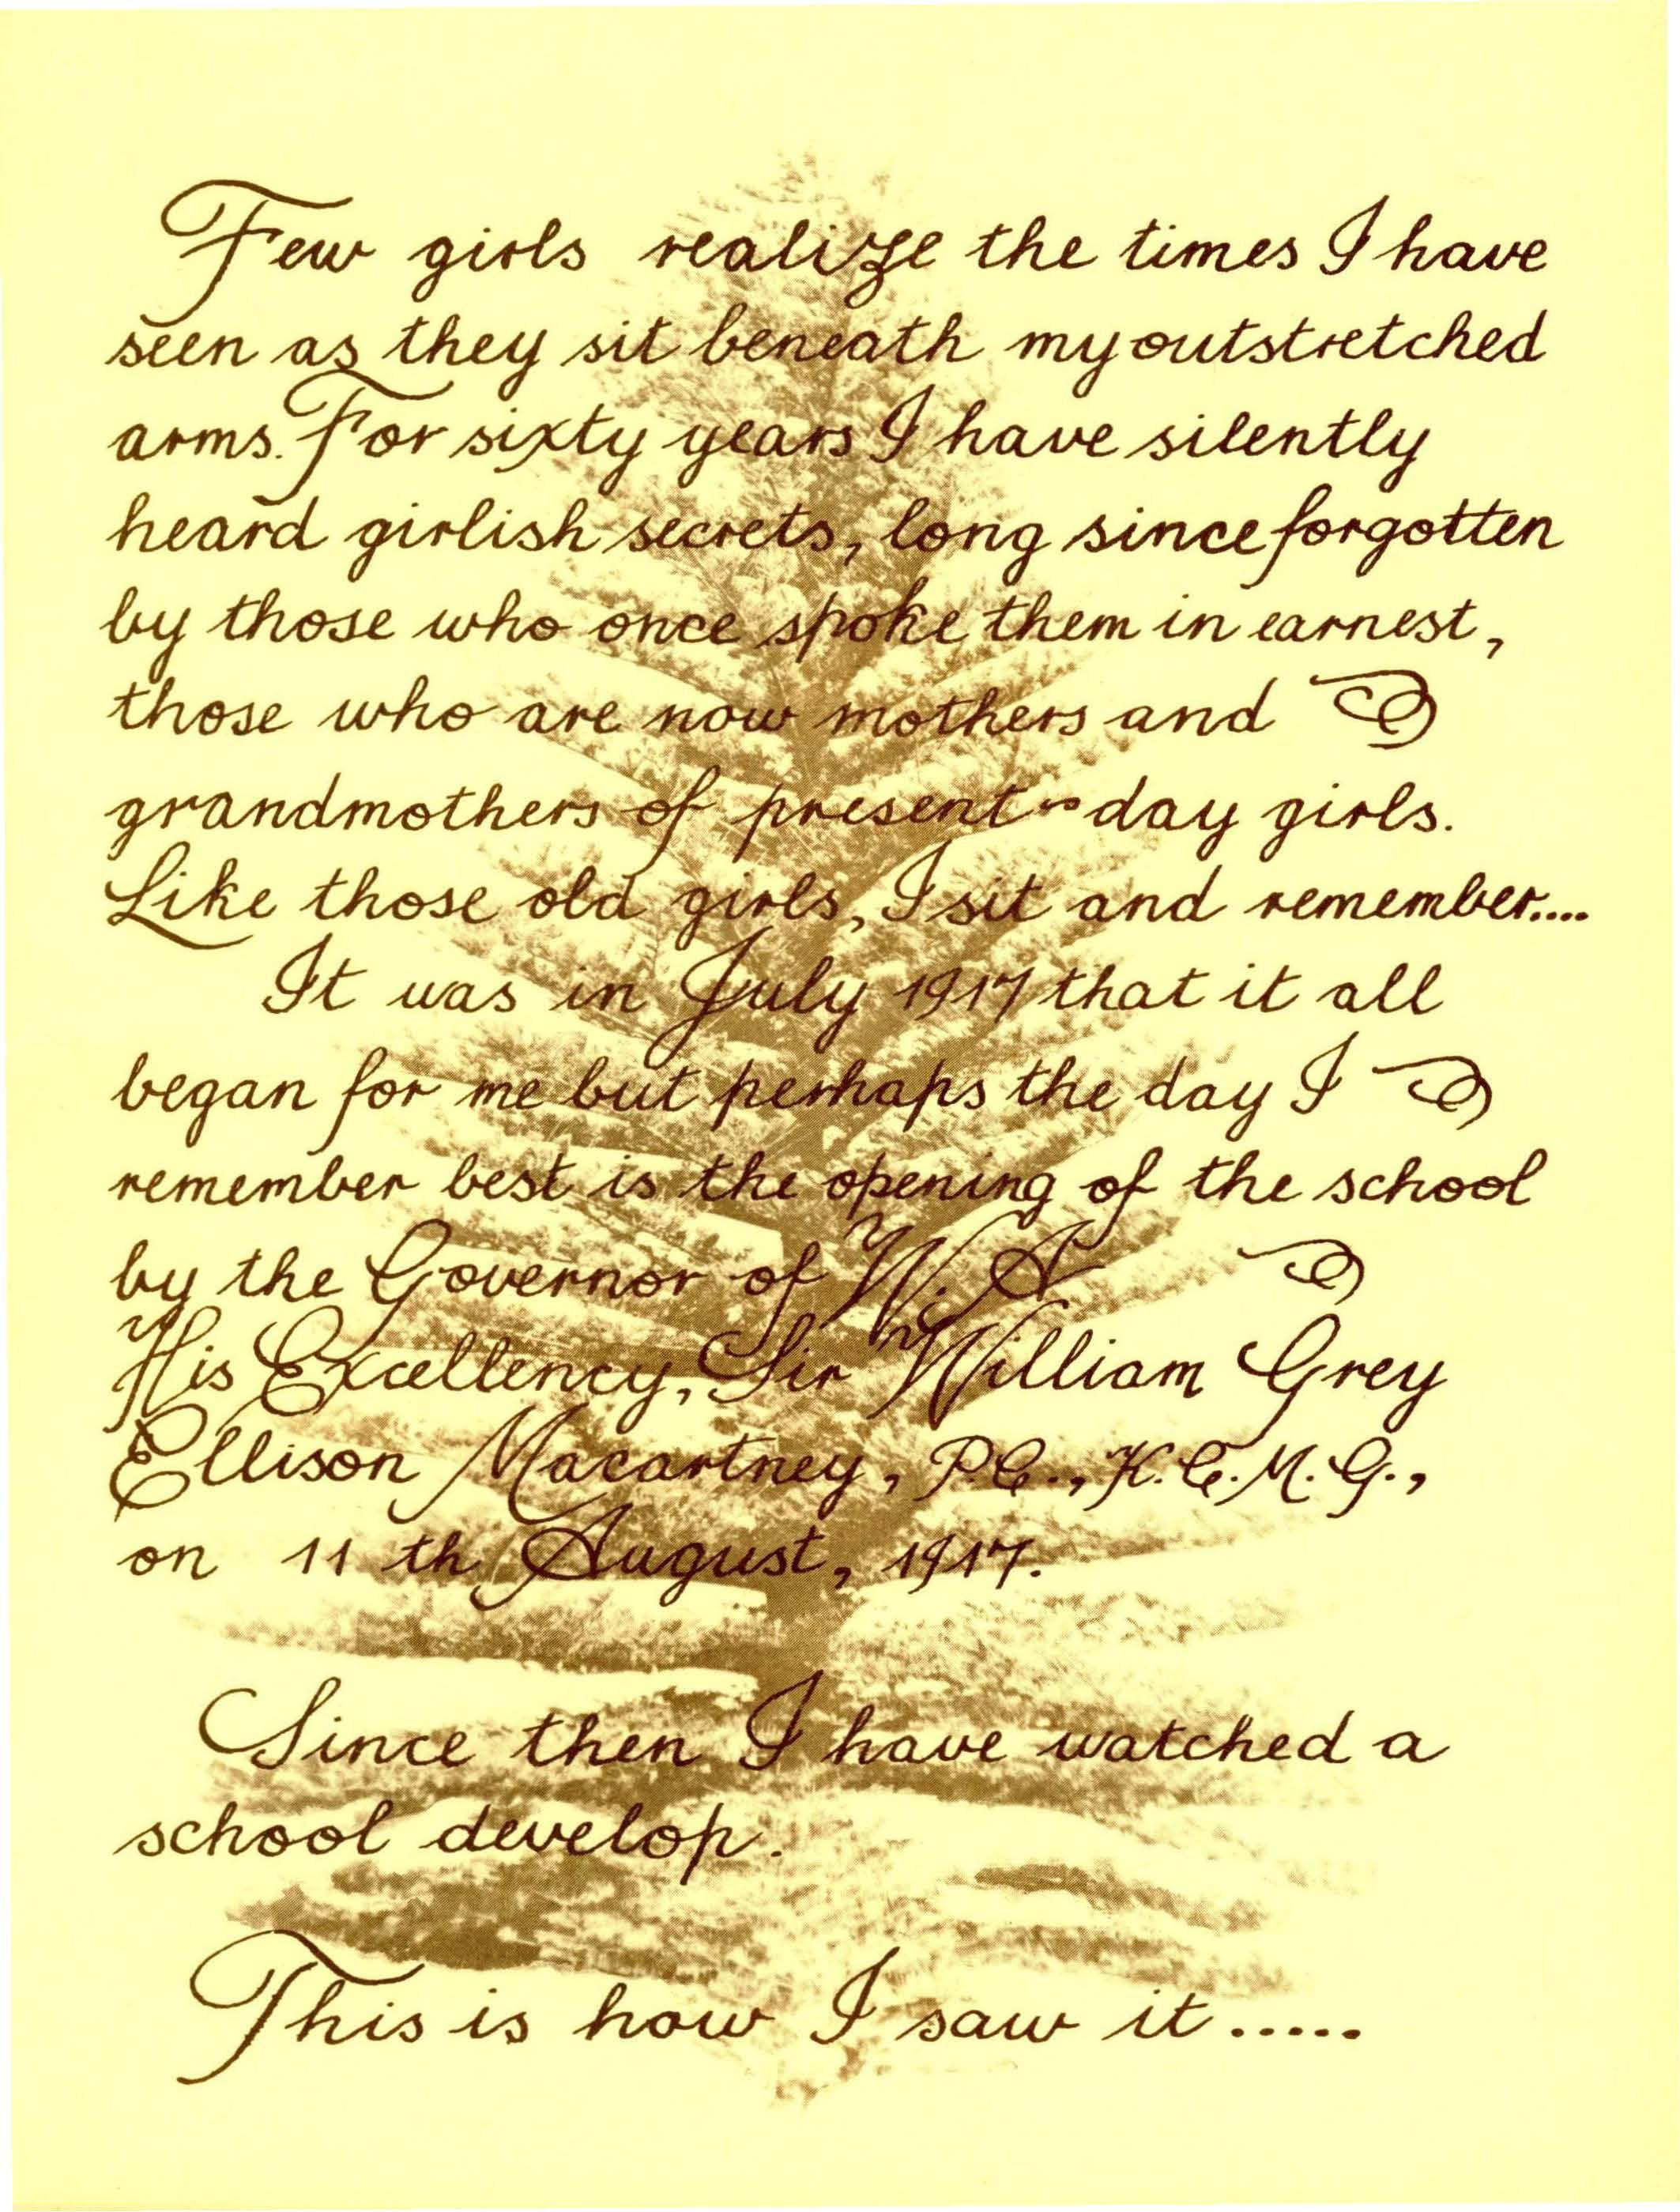 Few girls realize the times I have
seen as they sit beneath my outstretched
arms. For sixty years I have silently
heard girlish secrets, long since forgotten
by those who once spoke them in earnest,
those who are now mothers and
grandmothers of present-day girls.
Like those old girls, I sit and remember....
It was in July 1917 that it all
began for me but perhaps the day I
remember best is the opening of the school
by the Governor of W.A
His Excellency, Sir William Grey
Ellison Macartney, P.C., K.C.M.G.,
on 11 th August, 1917.
Since then I have watched a
school develop.
This is how I saw it.....